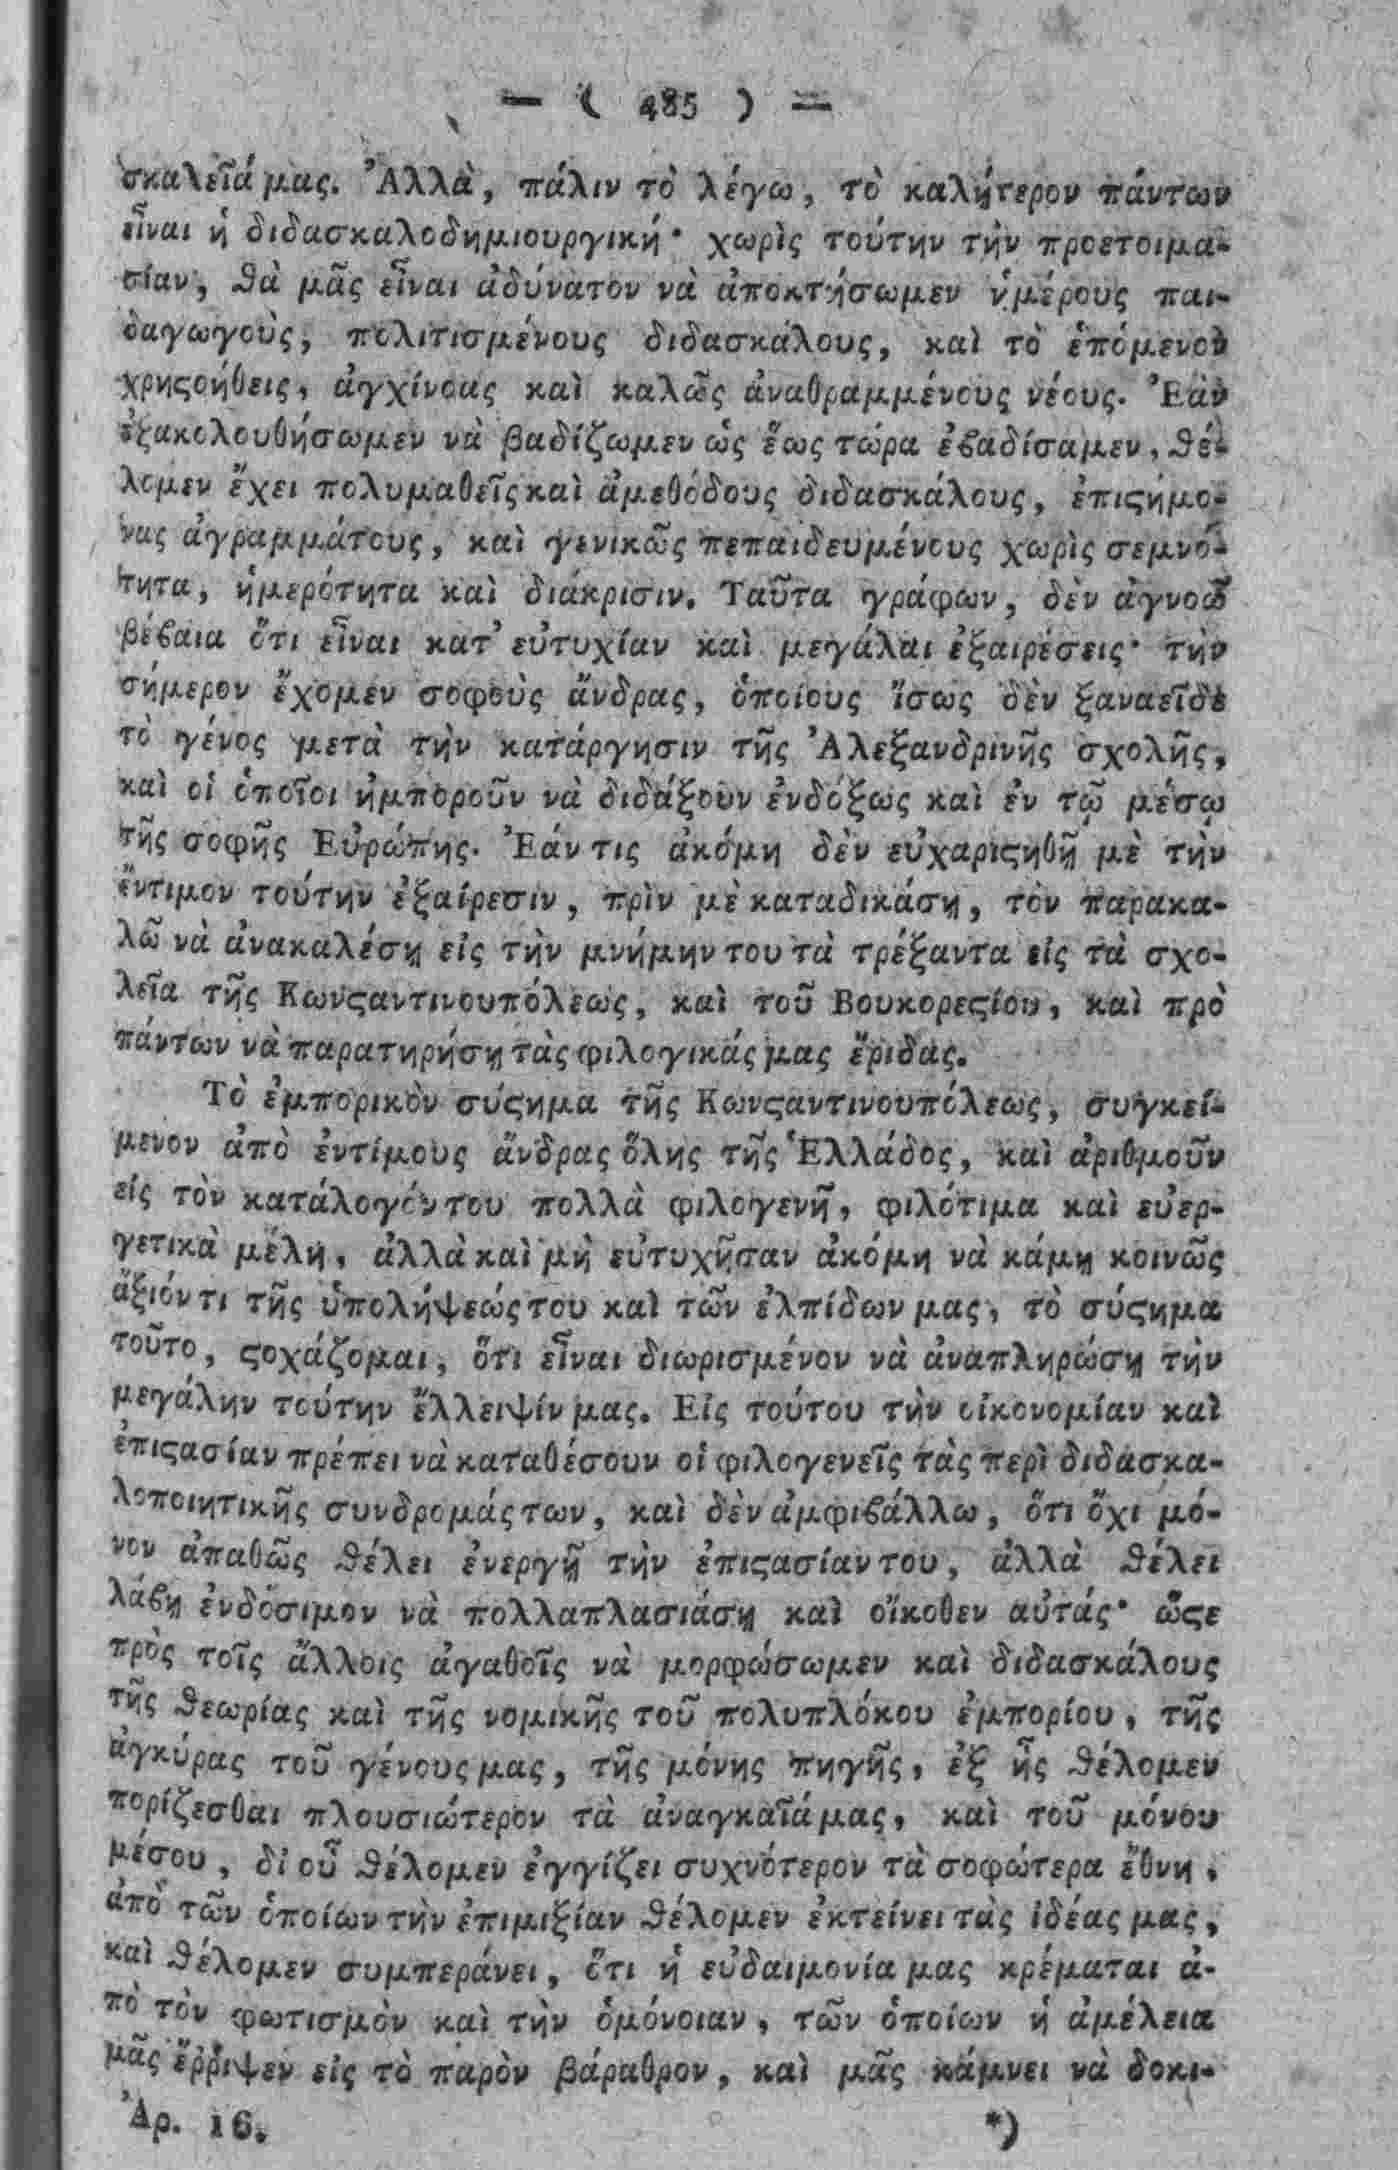 — ( 485 ) —
σκαλεῖά μας. Ἀλλὰ, πάλιν τὸ λέγω, τὸ καλήτερον πάντων
εἶναι ἡ διδασκαλοδημιουργική· χωρὶς τούτην τὴν προετοιμα-
σίαν, θὰ μᾶς εἶναι ἀδύνατον νὰ ἀποκτήσωμεν ἡμέρους παι-
δαγωγοὺς, πολιτισμένους διδασκάλους, καὶ τὸ ἑπόμενον
χρηϛοήθεις, ἀγχίνοας καὶ καλῶς ἀναθραμμένους νέους. Ἐὰν
ἐξακολουθήσωμεν νὰ βαδίζωμεν ὡς ἕως τώρα ἐϐαδίσαμεν, θέ-
λομεν ἔχει πολυμαθεῖς καὶ ἀμεθόδους διδασκάλους, ἐπιϛήμο-
νας ἀγραμμάτους, καὶ γενικῶς πεπαιδευμένους χωρὶς σεμνό-
τητα, ἡμερότητα καὶ διάκρισιν. Ταῦτα γράφων, δὲν ἀγνοῶ
βέϐαια ὅτι εἶναι κατ᾽ εὐτυχίαν καὶ μεγάλαι ἐξαιρέσεις· τὴν
σήμερον ἔχομεν σοφοὺς ἄνδρας, ὁποίους ἴσως δὲν ξαναεῖδε
τὸ γένος μετὰ τὴν κατάργησιν τῆς Ἀλεξανδρινῆς σχολῆς,
καὶ οἱ ὁποῖοι ἠμποροῦν νὰ διδάξουν ἐνδόξως καὶ ἐν τῷ μέσῳ
τῆς σοφῆς Εὐρώπης. Ἐάν τις ἀκόμη δὲν εὐχαριϛηθῇ μὲ τὴν
ἔντιμον τούτην ἐξαίρεσιν, πρὶν μὲ καταδικάσῃ, τὸν παρακα-
λῶ νὰ ἀνακαλέσῃ εἰς τὴν μνήμην του τὰ τρέξαντα εἰς τὰ σχο-
λεῖα τῆς Κωνϛαντινουπόλεως, καὶ τοῦ Βουκορεϛίου, καὶ πρὸ
πάντων νὰ παρατηρήσῃ τὰς φιλογικάς μας ἔριδας.
Τὸ ἐμπορικὸν σύϛημα τῆς Κωνϛαντινουπόλεως, συγκεί-
μενον ἀπὸ ἐντίμους ἄνδρας ὅλης τῆς Ἑλλάδος, καὶ ἀριθμοῦν
εἰς τὸν κατάλογόν του πολλὰ φιλογενῆ, φιλότιμα καὶ εὐερ-
γετικὰ μέλη, ἀλλὰ καὶ μὴ εὐτυχῆσαν ἀκόμη νὰ κάμῃ κοινῶς
ἄξιόν τι τῆς ὑπολήψεώς του καὶ τῶν ἐλπίδων μας, τὸ σύϛημα
τοῦτο, ϛοχάζομαι, ὅτι εἶναι διωρισμένον νὰ ἀναπληρώσῃ τὴν
μεγάλην τούτην ἔλλειψίν μας. Εἰς τούτου τὴν οἰκονομίαν καὶ
ἐπιϛασίαν πρέπει νὰ καταθέσουν οἱ φιλογενεῖς τὰς περὶ διδασκα-
λοποιητικῆς συνδρομάς των, καὶ δὲν ἀμφιϐάλλω, ὅτι ὄχι μό-
νον ἀπαθῶς θέλει ἐνεργῇ τὴν ἐπιϛασίαν του, ἀλλὰ θέλει
λάϐῃ ἐνδόσιμον νὰ πολλαπλασιάσῃ καὶ οἴκοθεν αὐτάς· ὥϛε
πρὸς τοῖς ἄλλοις ἀγαθοῖς νὰ μορφώσωμεν καὶ διδασκάλους
τῆς θεωρίας καὶ τῆς νομικῆς τοῦ πολυπλόκου ἐμπορίου, τῆς
ἀγκύρας τοῦ γένους μας, τῆς μόνης πηγῆς, ἐξ ἧς θέλομεν
πορίζεσθαι πλουσιώτερον τὰ ἀναγκαῖά μας, καὶ τοῦ μόνου
μέσου, δι οὗ θέλομεν ἐγγίζει συχνότερον τὰ σοφώτερα ἔθνη,
ἀπὸ τῶν ὁποίων τὴν ἐπιμιξίαν θέλομεν ἐκτείνει τὰς ἰδέας μας,
καὶ θέλομεν συμπεράνει, ὅτι ἡ εὐδαιμονία μας κρέμαται ἀ-
πὸ τὸν φωτισμὸν καὶ τὴν ὁμόνοιαν, τῶν ὁποίων ἡ ἀμέλεια
μᾶς ἔῤῥιψεν εἰς τὸ παρὸν βάραθρον, καὶ μᾶς κάμνει νὰ δοκι-
Ἀρ. 16. *)